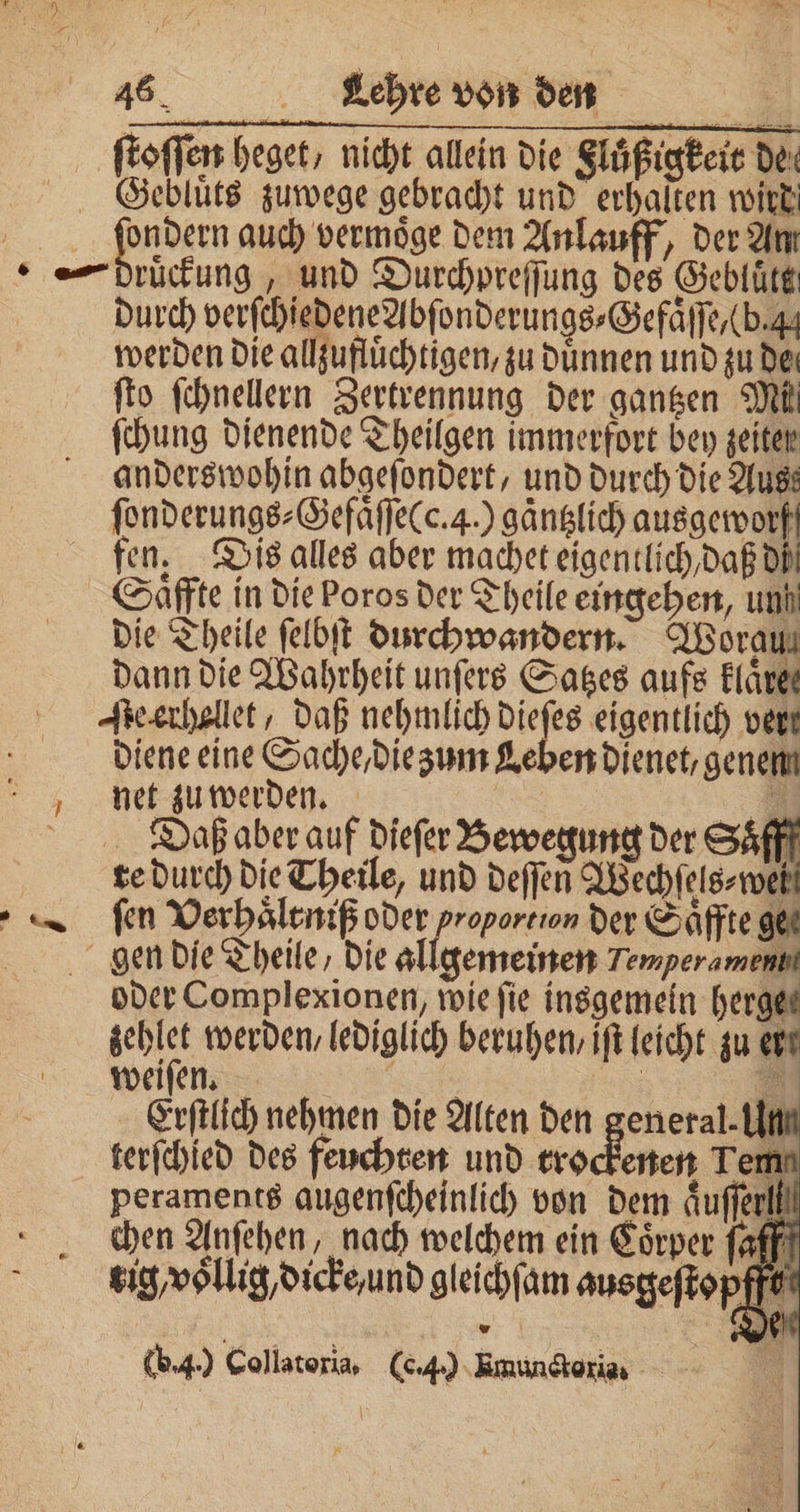 46. Lehre von den
ſtoſſen heget, nicht allein die Fluͤßigkeit de
Gebluͤts zuwege gebracht und erhalten wird
ſondern auch vermoͤge dem Anlauff, der An
druͤckung, und Durchpreſſung des Gebluͤts
durch verſchiedene Abſonderungs-Gefaͤſſe, (b.4
werden die allzufluͤchtigen, zu duͤnnen und zu de
ſto ſchnellern Zertrennung der gantzen Mi
ſchung dienende Theilgen immerfort bey zeiten
anderswohin abgeſondert, und durch die Aus
ſonderungs-Gefaͤſſe(c.4.) gaͤntzlich ausgeworf
fen. Dis alles aber machet eigentlich, daß di
Saͤffte in die Poros der Theile eingehen, und
die Theile ſelbſt durchwandern. Worau
dann die Wahrheit unſers Satzes aufs klaͤre
ſte erhellet, daß nehmlich dieſes eigentlich ver
diene eine Sache, die zum Leben dienet, genen
net zu werden.
Daß aber auf dieſer Bewegung der Saͤff
te durch die Theile, und deſſen Wechſels-wei
ſen Verhaͤltniß oder proportion der Saͤffte ge
gen die Theile, die allgemeinen Temperament
oder Complexionen, wie ſie insgemein herge
zehlet werden, lediglich beruhen, iſt leicht zu er
weiſen.
Erſtlich nehmen die Alten den general-Un
terſchied des feuchten und trockenen Tem
peraments augenſcheinlich von dem aͤuſſerli
chen Anſehen, nach welchem ein Coͤrper ſaff
tig, voͤllig, dicke, und gleichſam ausgeſtopfft
De
(b.4.) Collatoria. (c.4.) Emunctoria.